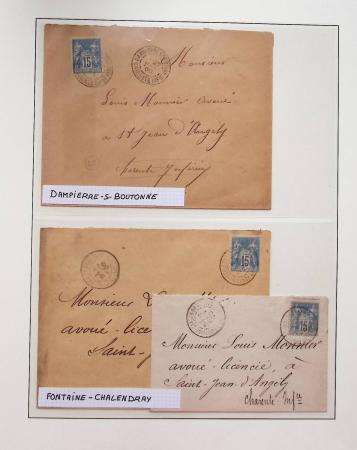 15
Monsieur
Louis Mounier avoué
a St Jean d'Angely
Charente Infre
DAMPIERRE-S-BOUTONNE
15
Monsieur
avoué-licen
Saint-
15
Monsieur Louis Mounier
avoué-licencié, à
Saint-Jean-d'Angely
Charente Infre
FONTAINE-CHALENDRAY